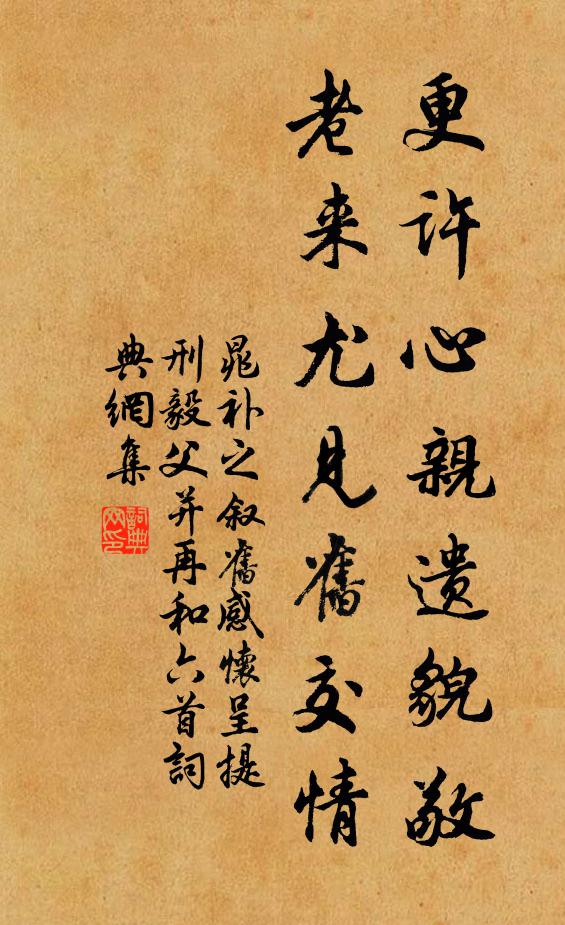 更许心親遗貌敬
老来尤見舊交情
晁补之叙舊感懷呈提
刑毅父并再和六首詞
典網集
詞典網印